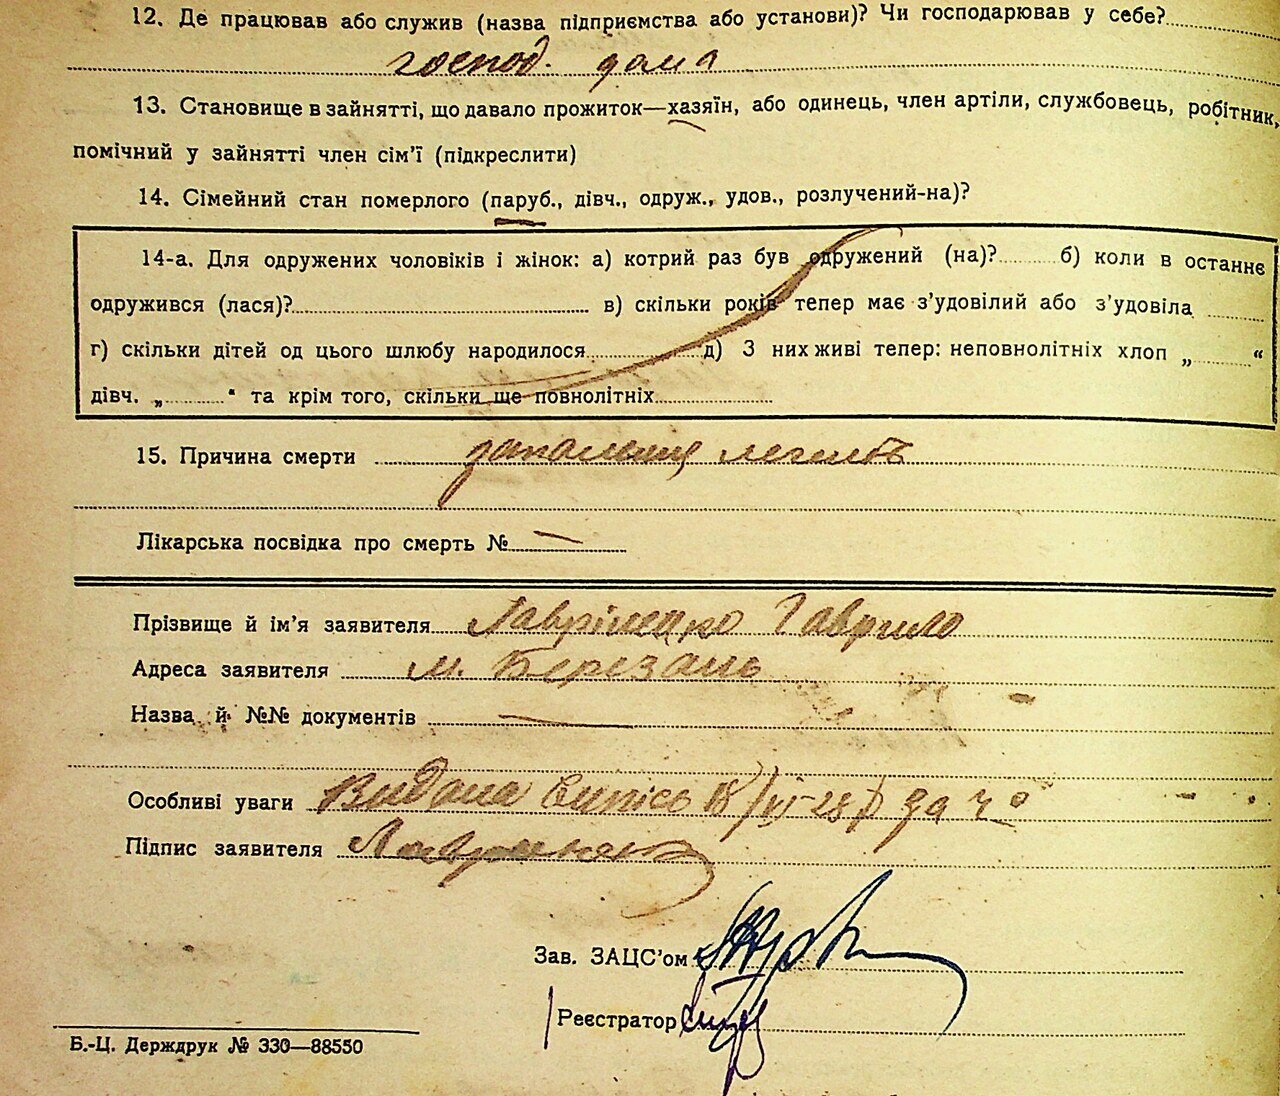 12. Де працював або служив (назва підприємства або установи)? Чи господарював у себе?
господ. дома
13. Становище в зайнятті, що давало прожиток—хазяїн, або одинець, член артіли, службовець, робітник,
помічний у зайнятті член сім'ї (підкреслити)
14. Сімейний стан померлого (паруб., дівч., одруж., удов., розлучений-на)?
14-а. Для одружених чоловіків і жінок: а) котрий раз був одружений (на)? б) коли в останнє
одружився (лася)? в) скільки років тепер має з'удовілий або з'удовіла
г) скільки дітей од цього шлюбу народилося д) З них живі тепер: неповнолітніх хлоп „ “
дівч. „ “ та крім того, скільки ще повнолітніх
15. Причина смерти запалення легенів
Лікарська посвідка про смерть № —
Прізвище й ім'я заявителя Лавріненко Гаврило
Адреса заявителя м. Березань
Назва й №№ документів —
Особливі уваги Видана випись за ч.
Підпис заявителя
Зав. ЗАЦС'ом
Реєстратор
Б.-Ц. Держдрук № 330—88550